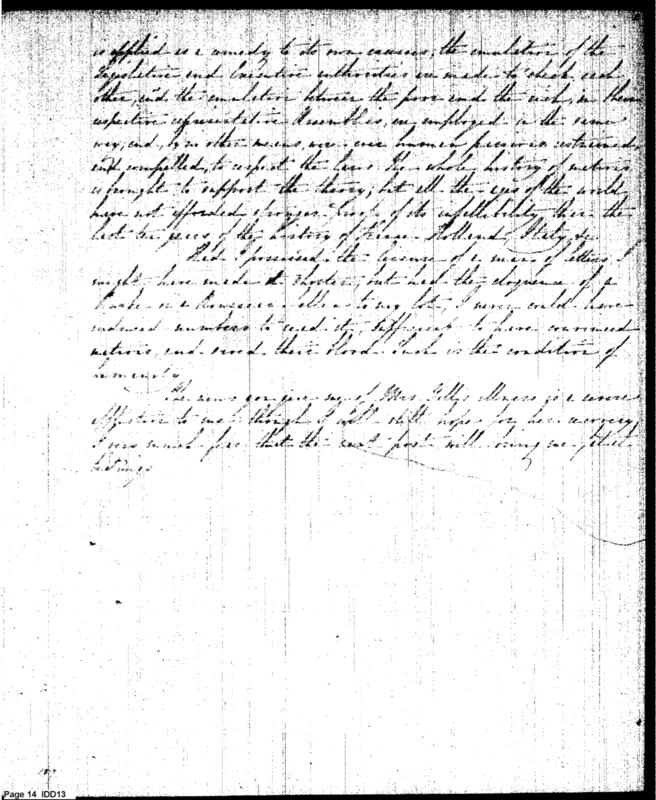 is applied as a remedy to its own causes; the emulation of the
Legislative and Executive authorities are made to check each
other, and the emulation between the poor and the rich, in their
respective representative Assemblies, are employed in the same
way; and, by no other means, are human passions restrained,
and compelled, to respect the Laws. The whole history of nations
is brought to support the theory; but all the ages of the world
have not afforded stronger Proofs of its infallibility than the
last ten years of the history of France Holland Italy &c
Had I possessed the leisure of a man of letters I
might have made it shorter; but had the eloquence of a
Burke or a Rousseau fallen to my lot, I never could have
induced numbers to read it, sufficient to have convinced
nations and saved their blood. Such is the condition of
humanity
The news you give me of Mrs. is a severe
Affliction to me though I will still hope for her recovery
I very much fear that the next post will bring me fatal
tidings
Page 14 IDD13